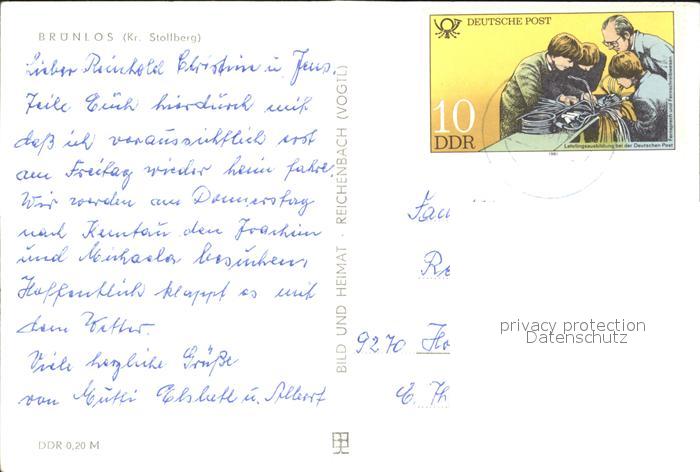 BRÜNLOS (Kr. Stollberg)
Lieber Reinhold Christine u. Jens.
Teile Euch hierdurch mit
daß ich voraussichtlich erst
am Freitag wieder heim fahre.
Wir werden am Donnerstag
nach den Joachim
und Michaela besuchen,
Hoffentlich klappt es mit
dem Wetter.
Viele herzliche Grüße
von Mutti Elsbeth u. Albert
DDR 0,20 M
BILD UND HEIMAT · REICHENBACH (VOGTL)
DEUTSCHE POST
10
DDR
Lehrlingsausbildung bei der Deutschen Post
1981
Fam
Re
9270 Ho
E. Th
privacy protection
Datenschutz